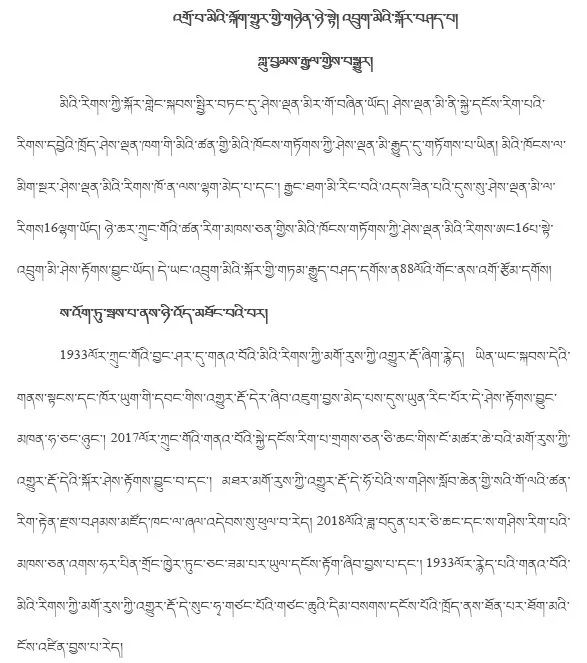 འགྲོ་བ་མིའི་ཀློག་གྱུར་གྱི་གཉེན་ཉེ་སྟེ། འབྲུག་མིའི་སྐོར་བཤད་པ།
ཀླུ་བྱམས་རྒྱལ་གྱིས་བསྒྱུར།
མིའི་རིགས་ཀྱི་སྐོར་གླེང་སྐབས་སྤྱིར་བཏང་དུ་ཤེས་ལྡན་མིར་གོ་བཞིན་ཡོད། ཤེས་ལྡན་མི་ནི་སྐྱེ་དངོས་རིག་པའི་
རིགས་དབྱེའི་ཁྲོད་ཤེས་ལྡན་ཁག་གི་མིའི་ཚན་གྱི་མིའི་ཁོངས་གཏོགས་ཀྱི་ཤེས་ལྡན་མི་རྒྱུད་དུ་གཏོགས་པ་ཡིན། མིའི་ཁོངས་ལ་
མིག་སྔར་ཤེས་ལྡན་མིའི་རིགས་ཁོ་ན་ལས་ལྷག་མེད་པ་དང་། རྒྱང་ཐག་མི་རིང་བའི་འདས་ཟིན་པའི་དུས་སུ་ཤེས་ལྡན་མི་ལ་
རིགས16ལྷག་ཡོད། ཉེ་ཆར་ཀྲུང་གོའི་ཚན་རིག་མཁས་ཅན་གྱིས་མིའི་ཁོངས་གཏོགས་ཀྱི་ཤེས་ལྡན་མིའི་རིགས་ཨང16པ་སྟེ་
འབྲུག་མི་ཤེས་རྟོགས་བྱུང་ཡོད། དེ་ཡང་འབྲུག་མིའི་སྐོར་གྱི་གཏམ་རྒྱུད་བཤད་དགོས་ན88ལོའི་གོང་ནས་འགོ་རྩོམ་དགོས།
ས་འོག་ཏུ་སྦས་པ་ནས་ཉི་འོད་མཐོང་བའི་བར།
1933ལོར་ཀྲུང་གོའི་བྱང་ཤར་དུ་གནའ་བོའི་མིའི་རིགས་ཀྱི་མགོ་རུས་ཀྱི་འགྱུར་རྡོ་ཞིག་རྙེད། ཡིན་ཡང་སྐབས་དེའི་
གནས་སྟངས་དང་ཁོར་ཡུག་གི་དབང་གིས་འགྱུར་རྡོ་དེར་ཞིབ་འཇུག་བྱས་མེད་པས་དུས་ཡུན་རིང་པོར་དེ་ཤེས་རྟོགས་བྱུང་
མཁན་ཧ་ཅང་ཉུང་། 2017ལོར་ཀྲུང་གོའི་གནའ་བོའི་སྐྱེ་དངོས་རིག་པ་གྲགས་ཅན་ཅི་ཆང་གིས་ངོ་མཚར་ཆེ་བའི་མགོ་རུས་ཀྱི་
འགྱུར་རྡོ་དེའི་སྐོར་ཤེས་རྟོགས་བྱུང་བ་དང་། མཐར་མགོ་རུས་ཀྱི་འགྱུར་རྡོ་དེ་ཧོ་པེའི་ས་གཤིས་སློབ་ཆེན་གྱི་སའི་གོ་ལའི་ཚན་
རིག་རྟེན་རྫས་བཤམས་མཛོད་ཁང་ལ་ཞལ་འདེབས་སུ་ཕུལ་བ་རེད། 2018ལོའི་ཟླ་བདུན་པར་ཅི་ཆང་དང་ས་གཤིས་རིག་པའི་
མཁས་ཅན་འགས་ཧར་པིན་གྲོང་ཁྱེར་ཏུང་ཅང་ཟམ་པར་ཡུལ་དངོས་རྟོག་ཞིབ་བྱས་པ་དང་། 1933ལོར་རྙེད་པའི་གནའ་བོའི་
མིའི་རིགས་ཀྱི་མགོ་རུས་ཀྱི་འགྱུར་རྡོ་དེ་སུང་ཧྭ་གཙང་པོའི་གཙང་ཆུའི་དིམ་བསགས་དངོས་པོའི་ཁྲོད་ནས་ཐོན་པར་ཐོག་མའི་
ངོས་འཛིན་བྱས་པ་རེད།